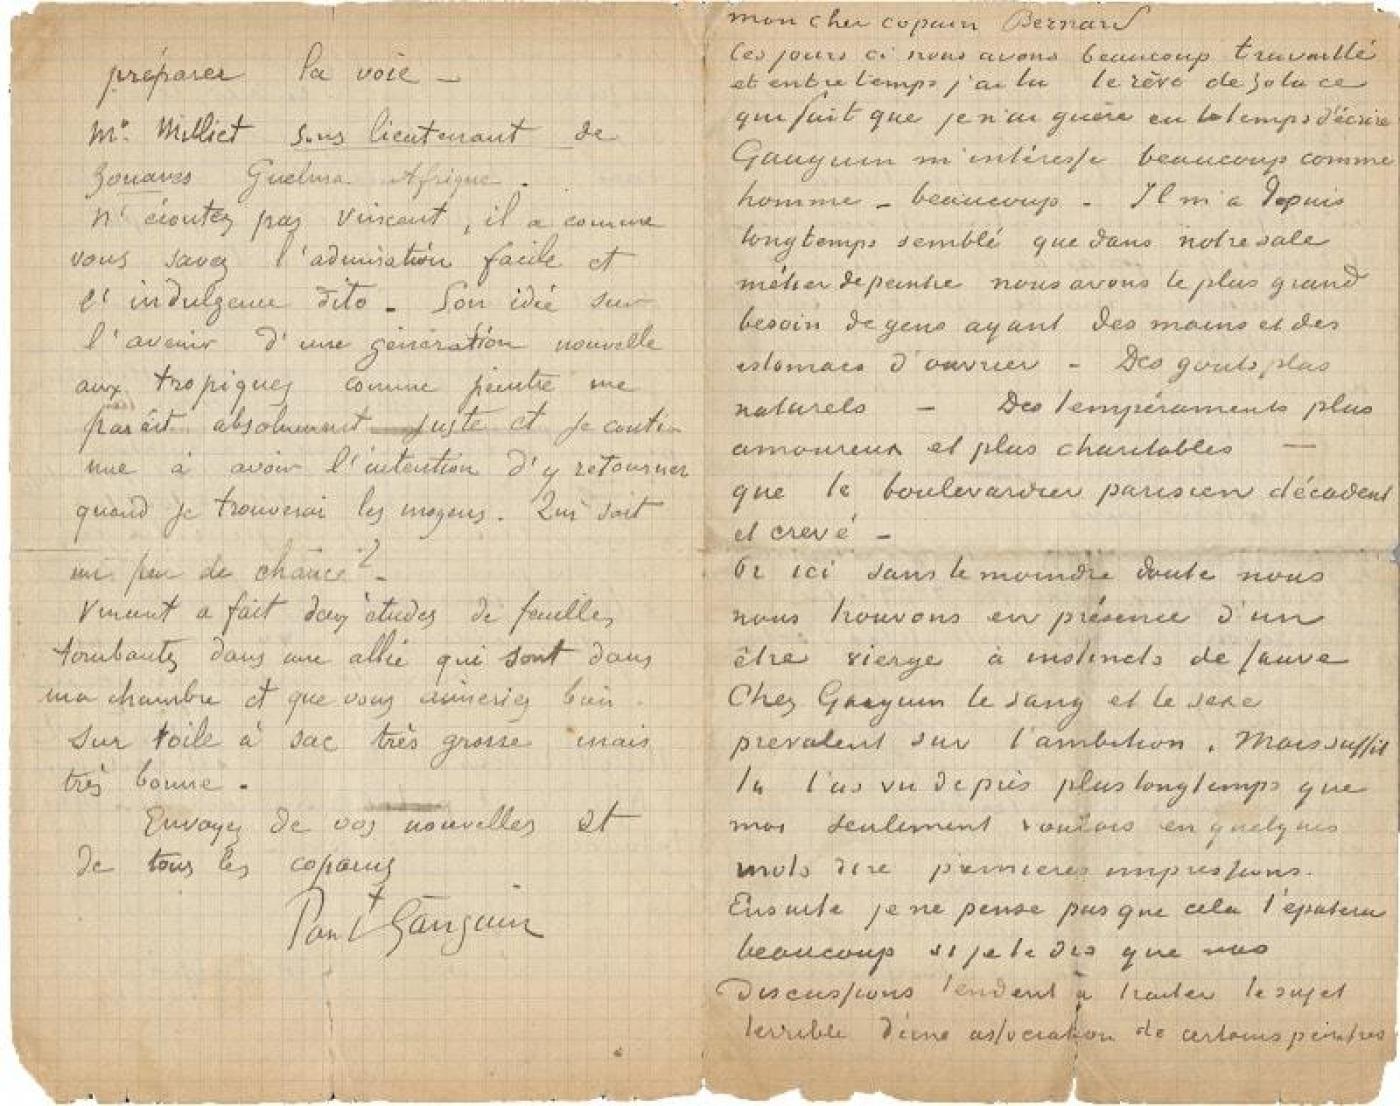 préparer la voie —
Mr. Milliet sous lieutenant de
Zouaves Guelma Afrique.
N'écoutez pas Vincent, il a comme
vous savez l'admiration facile et
l'indulgence dito – Son idée sur
l'avenir d'une génération nouvelle
aux tropiques comme peintre me
parait absolument juste et je conti-
nue à avoir l'intention d'y retourner
quand je trouverai les moyens. Qui sait
un peu de chance ? –
Vincent a fait deux études de feuilles
tombantes dans une allée qui sont dans
ma chambre et que vous aimeriez bien
sur toile à sac très grosse mais
très bonne.
Envoyez de vos nouvelles et
de tous les copains
Paul Gauguin
mon cher copain Bernard
Ces jours ci nous avons beaucoup travaillé
et entretemps j'ai lu le rêve de Zola ce
qui fait que je n'ai guère eu le temps d'écrire
Gauguin m'intéresse beaucoup comme
homme – beaucoup – Il m'a depuis
longtemps semblé que dans notre sale
métier de peintre nous avons le plus grand
besoin de gens ayant des mains et des
estomacs d'ouvrier – Des gouts plus
naturels – Des tempéraments plus
amoureux et plus charitables —
que le boulevardier parisien décadent
et crevé –
Or ici sans le moindre doute nous
nous trouvons en présence d'un
être vierge à instincts de sauvage
Chez Gauguin le sang et le sexe
prévalent sur l'ambition. Mais suffit
tu l'as vu de près plus longtemps que
moi seulement voulais en quelques
mots dire premières impressions.
Ensuite je ne pense pas que cela t'épatera
beaucoup si je te dis que nos
discussions tendent à traiter le sujet
terrible d'une association de certains peintres